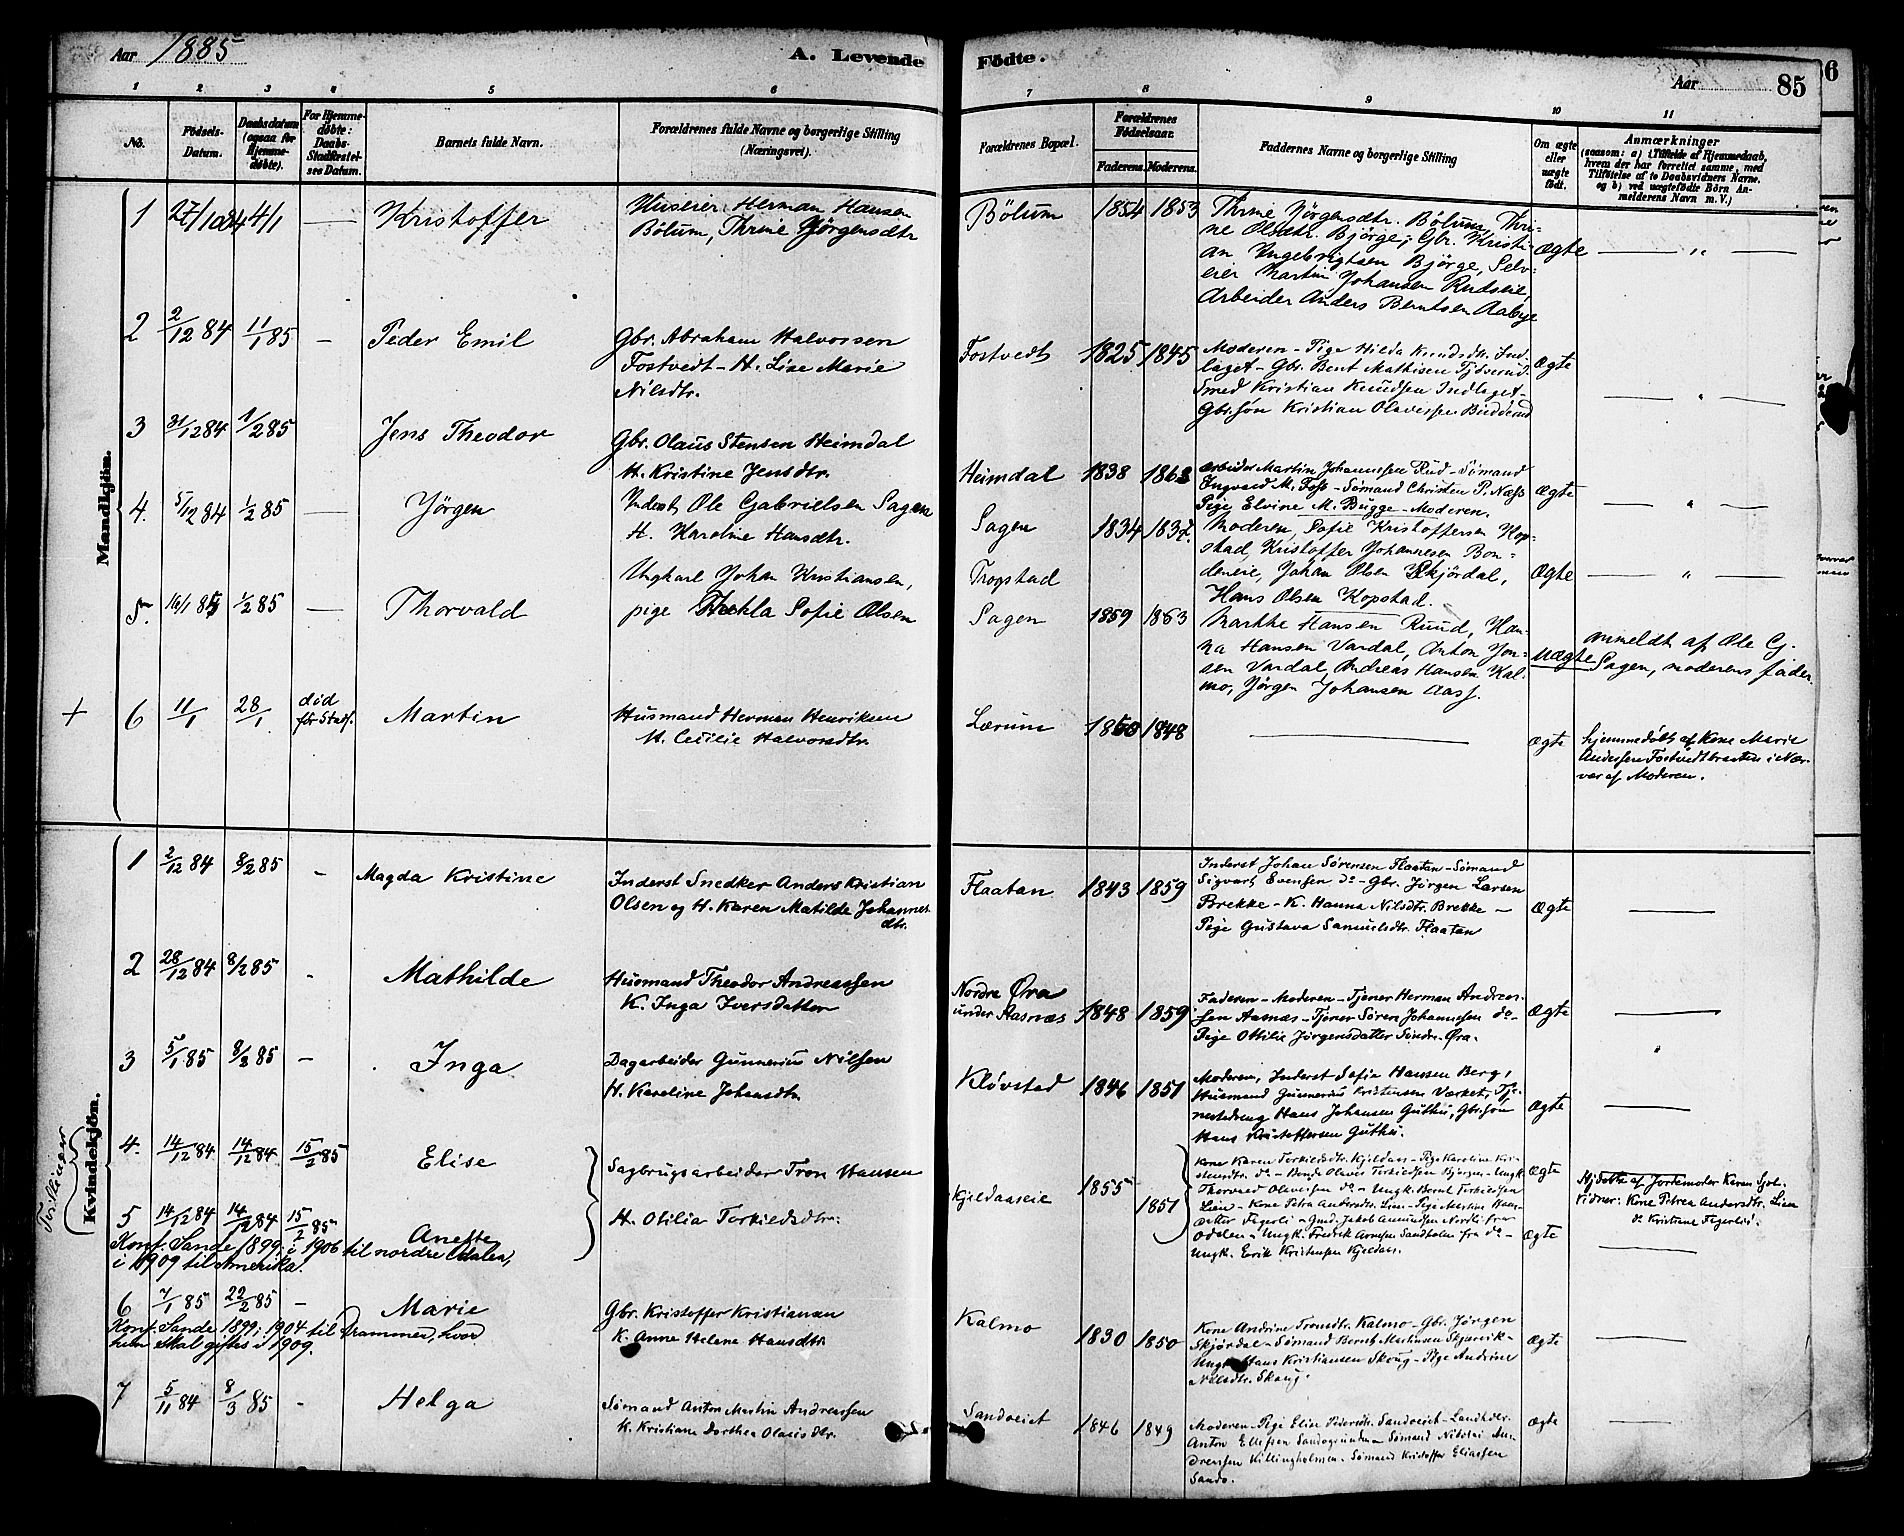 Aar 1885
A. Levende
Födte.
Aar
85
1 2 3 4 5 6 7 8 9 10 11
No.
Födsels-Datum.
Daabsdatum (ogsaa for Hjemmedöbte).
For Hjemmedöbte: Daabs-Stadfæstelses Datum.
Barnets fulde Navn.
Forældrenes fulde Navne og borgerlige Stilling (Næringsvei).
Forældrenes Bopæl.
Forældrenes Födselsaar.
Faderens. Moderens.
Faddernes Navne og borgerlige Stilling
Om ægte eller uægte födt.
Anmærkninger
(saasom: a) i Tilfælde af Hjemmedaab, hvem der har forrettet samme, med Tilföielse af to Daabsvidners Navne, og b) ved uægtefödte Börn Anmelderens Navn m. V.)
Mandkjön.
1 27/10 84 4/1 — Kristoffer
Huseier Herman Hansen
Bölum, Thrine Jörgensdtr
Bölum 1854 1853
Thrine Jörgensdtr. Bölum, Thri-
ne Olsdtr. Björge, Gbr. Kristi-
an Ingebrigtsen Björge, Selv-
eier Martin Johansen Rudseie,
Arbeider Anders Berntsen Aabye
Ægte — „ —
2 2/12 84 11/1 85 — Peder Emil
Gbr. Abraham Halvorsen
Fostvedt - H. Lise Marie
Nilsdtr.
Fostvedt 1825 1845
Moderen - Pige Hilda Knudsdtr. Ind-
laget - Gbr. Bent Mathisen
Smed Kristian Knudsen Indlaget -
Gbr.sön Kristian Olavessen
Ægte — „ —
3 31/12 84 1/2 85 Jens Theodor
Gbr. Olaus Stensen Heimdal
H. Kristine Jensdtr.
Heimdal 1838 1863
Arbeider Martin Johannssen Rud - Sömand
Ingvald M. Foss - Sömand Christen P. Næss
Pige Elvine M. Bugge - Moderen.
Ægte — „ —
4. 5/12 84 1/2 85 — Jörgen
Inderst Ole Gabrielsen Sagen
H. Karoline Hansdtr.
Sagen 1834 1837.
Tropstad
Moderen, Sofie Kristoffersen Kop-
stad, Kristoffer Johannesen Bon-
deneie, Johan Olsen Skjördal,
Hans Olsen Kopstad.
Ægte — „ —
5. 16/1 85 1/2 85 — Thorvald
Ungkarl Johan Kristiansen,
pige Thekla Sofie Olsen
Sagen 1859 1863
Marthe Hansen Ruud, Han-
na Hansen Vardal, Anton Jon-
sen Vardal, Andreas Hansen Kal-
mo, Jörgen Johansen Aass.
Uægte
Anmeldt af Ole G.
Sagen, moderens fader.
+ 6 11/1 28/1 död för Stadf. Martin
Husmand Herman Henriksen
H. Cecilie Halvorsdtr.
Lærum 1850 1848 —
Ægte
hjemmedöbt af Kone Marie
Andersen Fostvedtbraaten i Nær-
vær af Moderen.
Kvindekjön.
1 2/12 84 8/2 85 - Magda Kristine
Inderst Snedker Anders Kristian
Olsen og H. Karen Matilde Johannes-
dtr.
Flaatan 1843 1859
Inderst Johan Sörensen Flaatan - Sömand
Sigvart Evensen do - Gbr. Jörgen Larsen
Brekke - K. Hanna Nilsdtr. Brekke -
Pige Gustava Samuelsdtr. Flaatan
Ægte —
2 28/12 84 8/2 85 - Mathilde
Husmand Theodor Andreassen
K. Inga Iversdatter
Nordre Øra
under Aasnæs 1848 1859
Faderen - Moderen - Tjener Herman Andreas-
sen Aasnæs - Tjener Sören Johannesen do -
Pige Ottilie Jörgensdatter Söndr. Øra -
Ægte —
3 5/1 85 8/2 85 - Inga
Dagarbeider Gunnerius Nilsen
H. Karoline Johansdtr
Klövstad 1846 1851
Moderen, Inderst Sofie Hansen Berg,
Husmand Gunnerius Kristensen Værket, Tje-
nestedreng Hans Johansen Guthu, Gbr.sön
Hans Kristoffersen Guthu.
Ægte —
Tvillinger
4. 14/12 84 14/12 84 15/2 85 Elise
Sagbrugsarbeider Tron Hansen
H. Otilia Torkildsdtr.
Kjeldaaseie 1855 1851
Kone Karen Torkildsdtr. Kjeldaas - Pige Karoline Kri-
stensdtr. do -
Thorvald Olavessen do - Ungk. Bernt Torkildsen
Lien - Kone Petra Andersdtr. Lien -
Odalen - Ungk. Fredrik Arnesen Sandholen fra do -
Ungk. Erik Kristensen Kjeldaas.
Ægte
Hj.döbte af Jordemoder Karen
Vidner: Kone Petrea Andersdtr. Lien
do Kristiane Fegerlid.
5 14/12 84 14/12 84 15/2 85 Anette
Konf. Sande 1899; i 1906 til nordre Odalen,
i 1909 til Amerika.
Ægte —
6 7/1 85 22/2 85 - Marie
Konf. Sande 1899; 1904 til Drammen, hvor
hun skal giftes i 1909.
Gbr. Kristoffer Kristiansen
K. Anne Helene Hansdtr.
Kalmo 1830 1850
Kone Andrine Tronsdtr. Kalmo - Gbr. Jörgen
Skjördal - Sömand Bernt Martinsen -
Ungk. Hans Kristiansen Skoug - Pige Andrine
Nilsdtr. Skoug.
Ægte —
7 5/11 84 8/3 85 - Helga
Sömand Anton Martin Andreassen
K. Kristiane Dorthea Olausdtr.
Sandveiet 1846 1849
Moderen - Pige Elise Pedersdtr. Sandveiet - Landh.
Anton Ellefsen - Sömand Nikolai An-
dreassen Killingholmen - Sömand Kristoffer Eliassen
Sando.
Ægte —